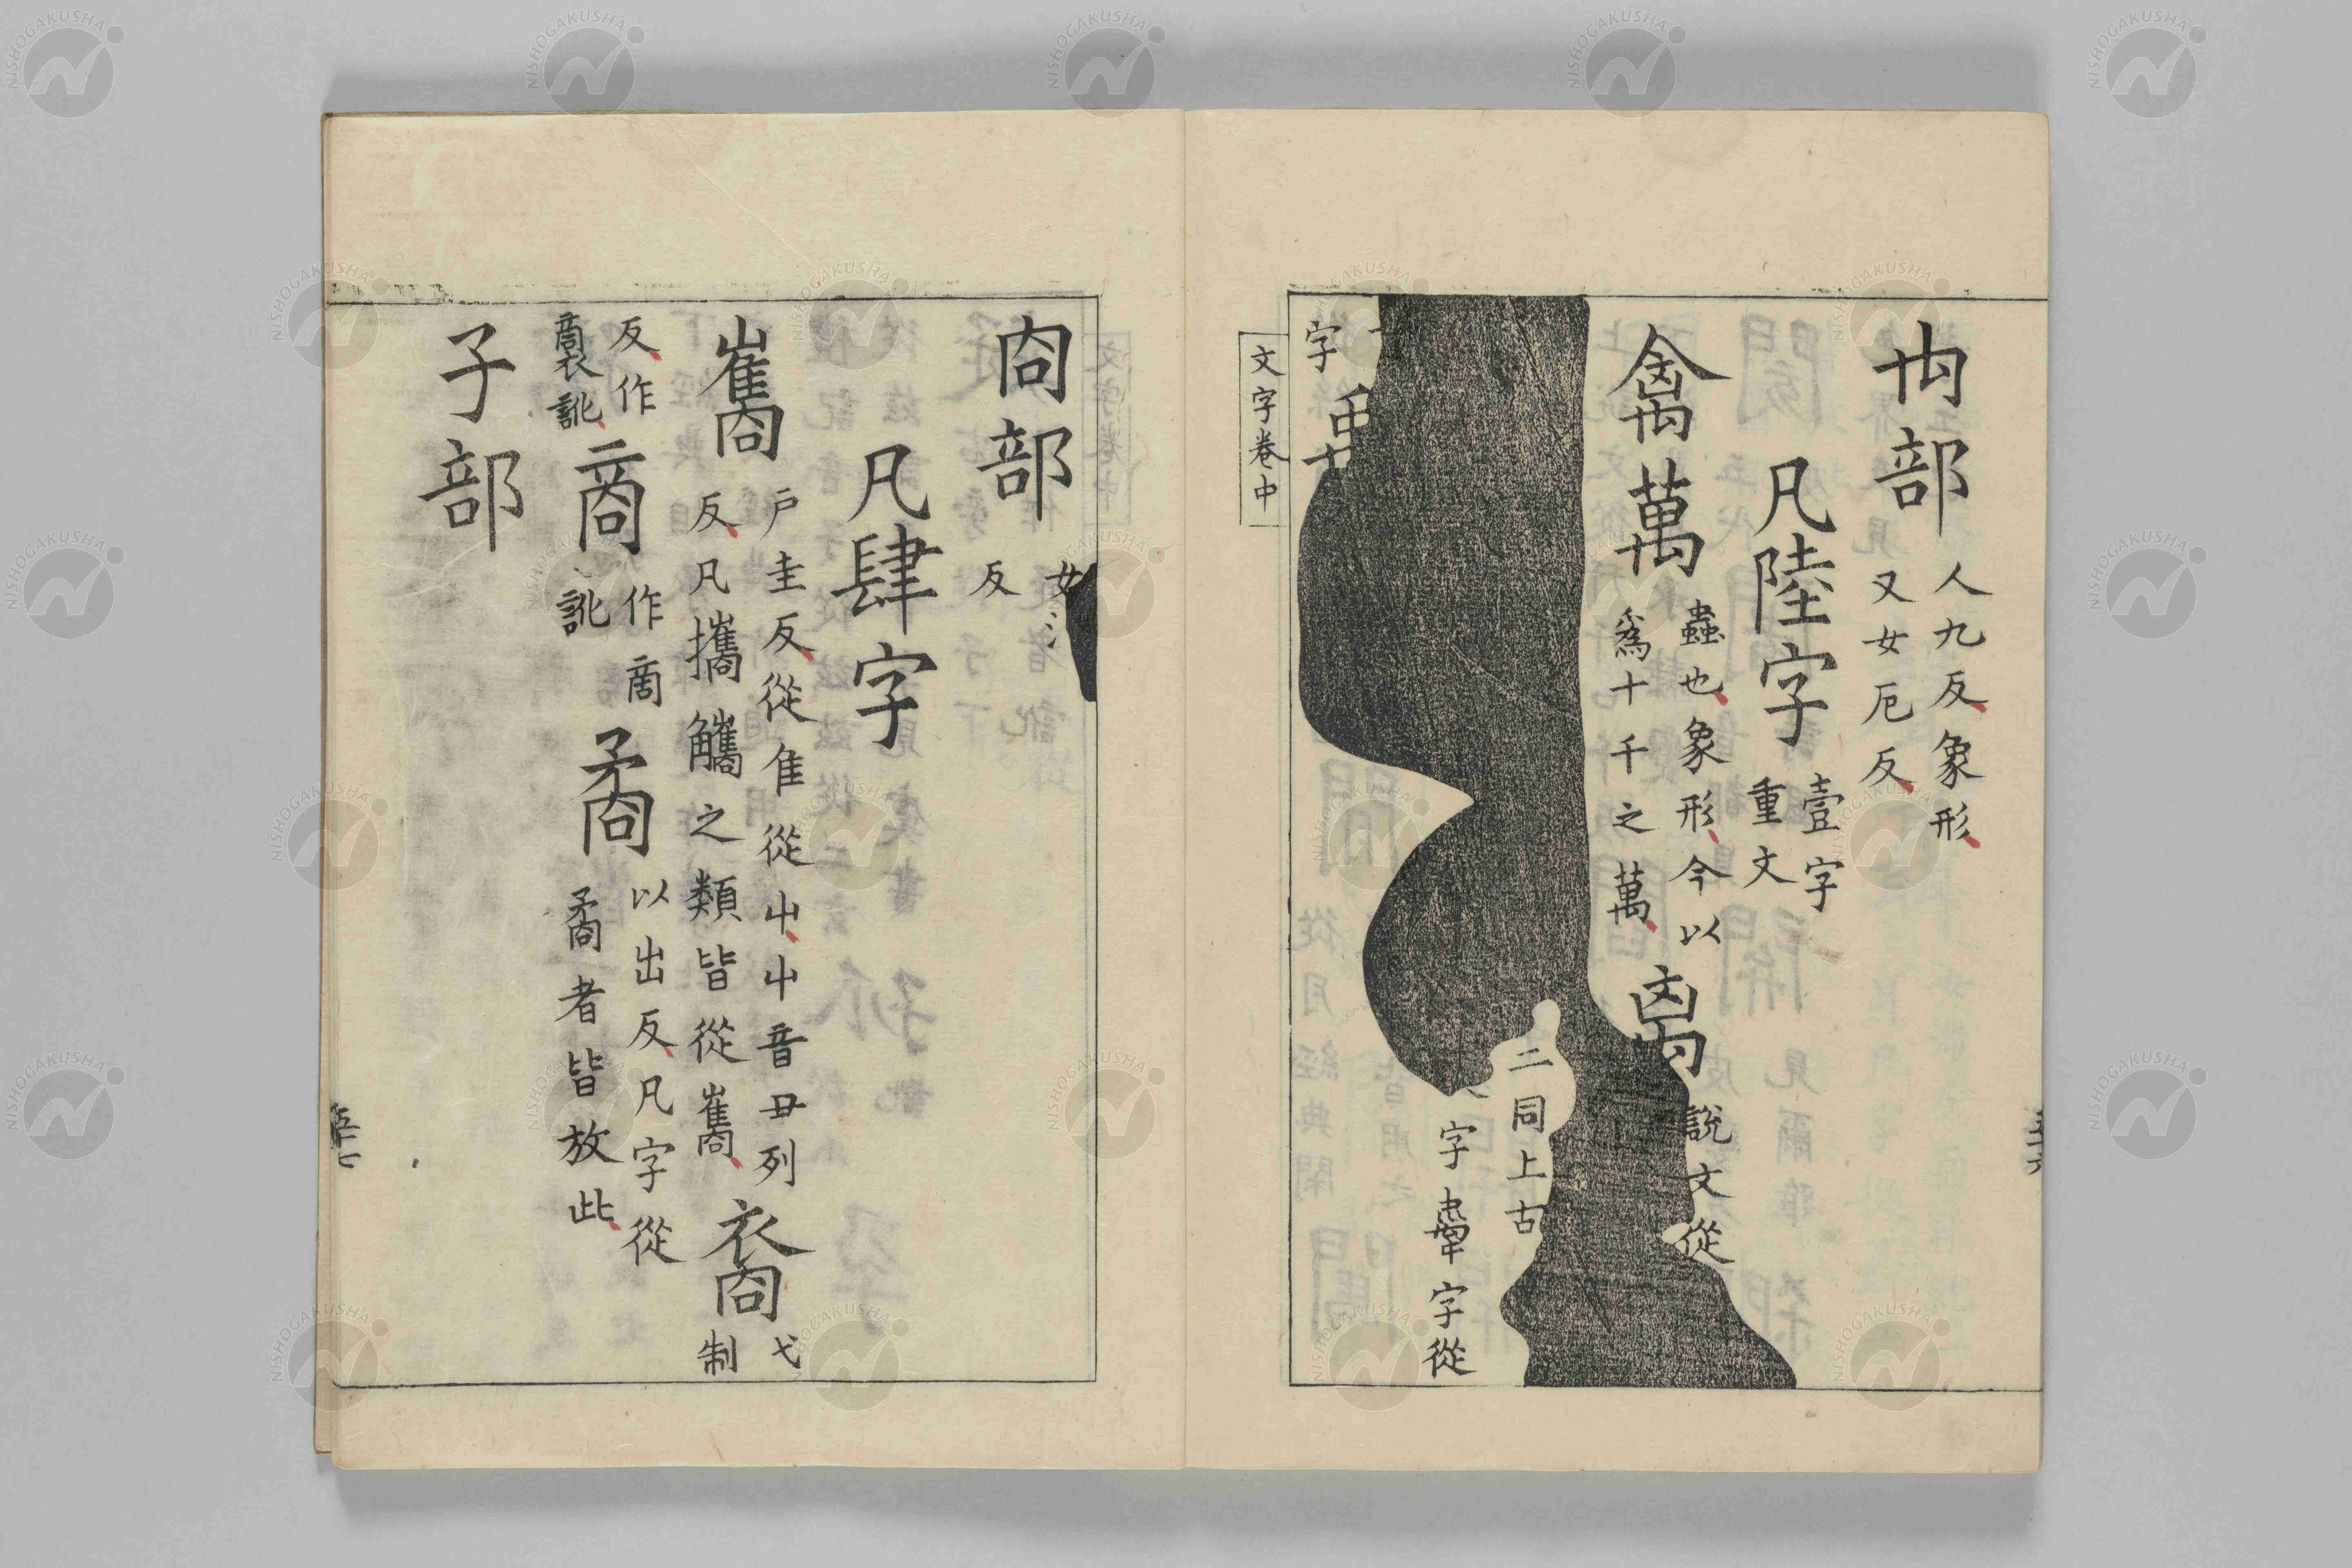 禸部 人九反象形
又女厄反
凡陸字 壹字
重文
禽萬 蟲也象形今以
爲十千之萬
禼 說文從
二同上古
字
字從
字
文字卷中
㕯部 女
反
凡肆字
巂 戶圭反從隹從屮屮音丑列
反凡攜觿之類皆從巂
裔 弋制
反作
裔訛
商 作啇
訛
矞 以出反凡字從
矞者皆放此
子部
五十七
NISHOGAKUSHA